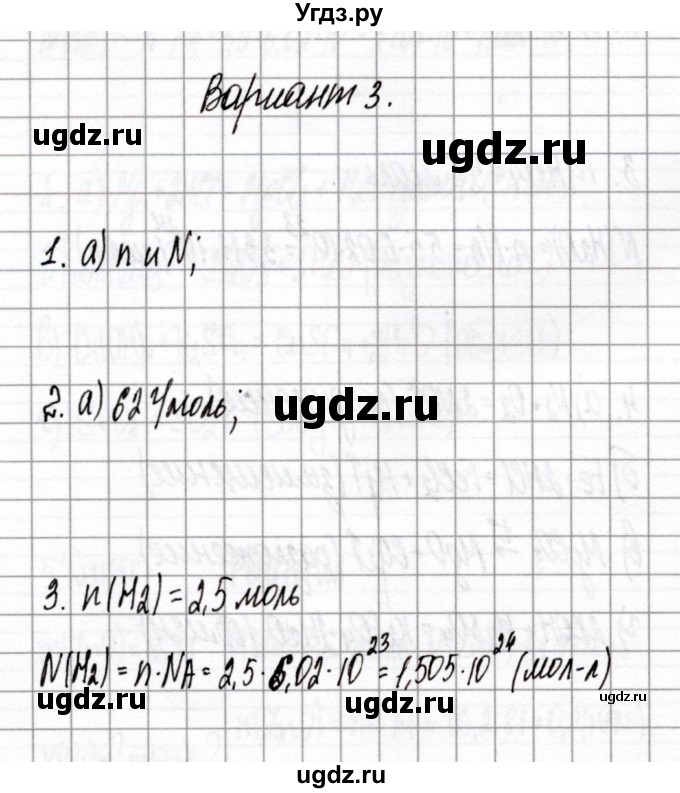 Угдз.ру
Вариант 3.
ugdz.ru
ugdz.ru
1. а) n и N;
2. а) 62 г/моль;
ugdz.ru
3. n(H2) = 2,5 моль
N(H2) = n·NA = 2,5·6,02·10²³ = 1,505·10²⁴ (мол-л)
ugdz.ru
ugdz.ru
ugdz.ru
ugdz.ru